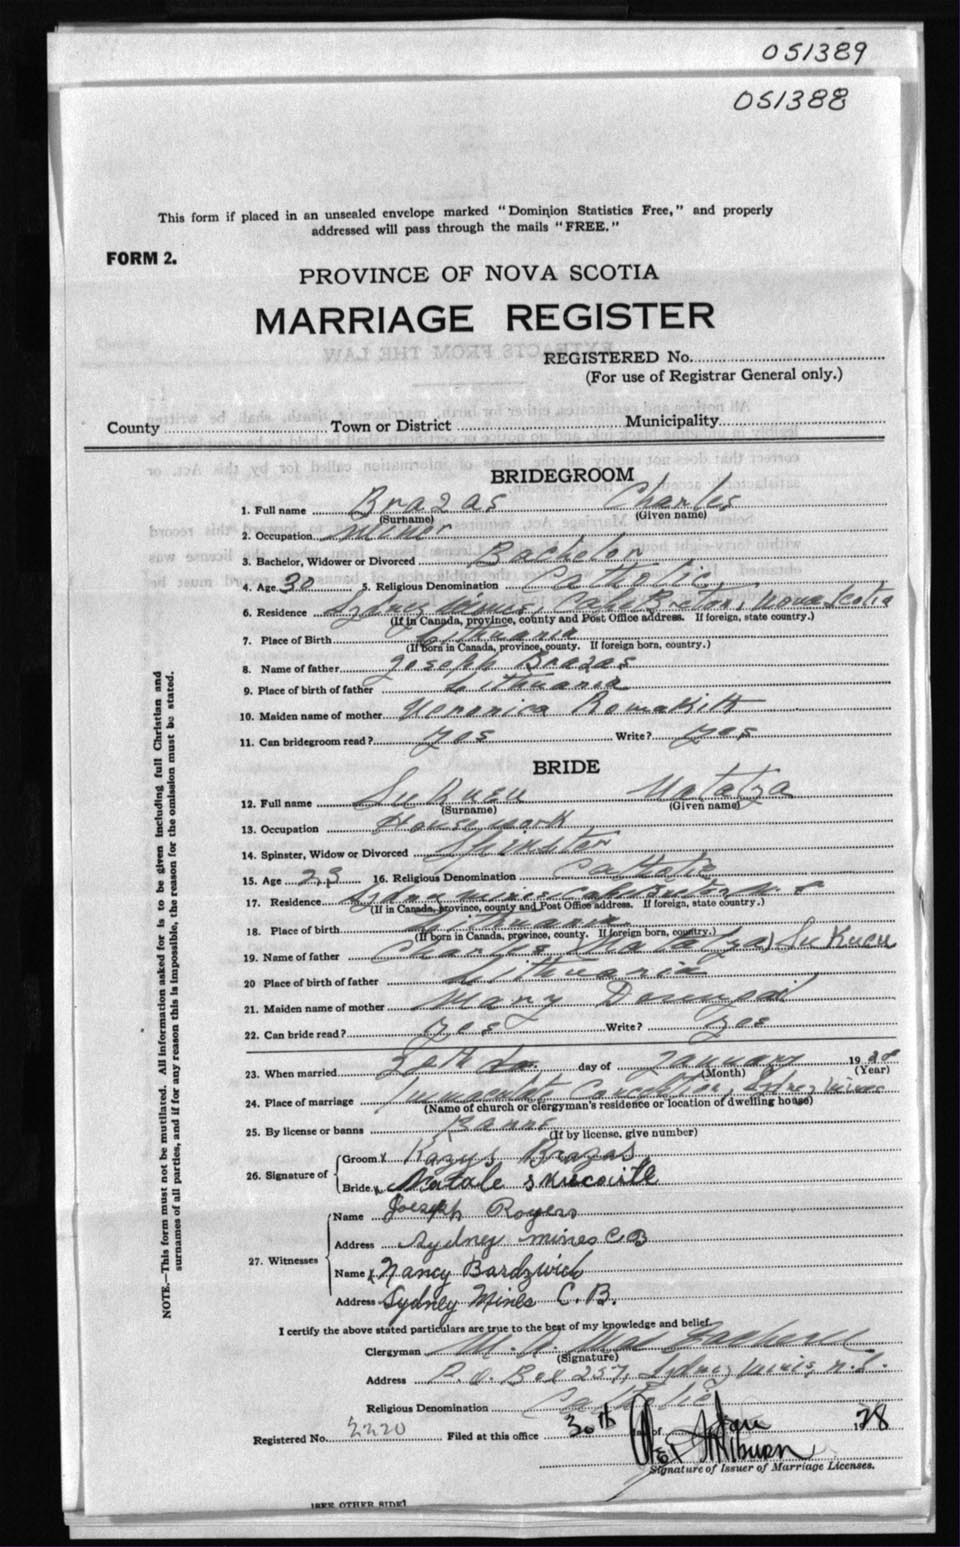 051389
051388
This form if placed in an unsealed envelope marked "Dominion Statistics Free," and properly
addressed will pass through the mails "FREE."
FORM 2.
PROVINCE OF NOVA SCOTIA
MARRIAGE REGISTER
REGISTERED No.
(For use of Registrar General only.)
County Town or District Municipality
BRIDEGROOM
1. Full name Brazas Charles
(Surname) (Given name)
2. Occupation Miner
3. Bachelor, Widower or Divorced Bachelor
4. Age 30 5. Religious Denomination Catholic
6. Residence Sydney Mines, Cape Breton, Nova Scotia
(If in Canada, province, county and Post Office address. If foreign, state country.)
7. Place of Birth Lithuania
(If born in Canada, province, county. If foreign born, country.)
8. Name of father Joseph Brazas
9. Place of birth of father Lithuania
10. Maiden name of mother Veronica
11. Can bridegroom read? yes Write? yes
BRIDE
12. Full name
(Surname) (Given name)
13. Occupation Housework
14. Spinster, Widow or Divorced Spinster
15. Age 23 16. Religious Denomination Catholic
17. Residence Sydney Mines Cape Breton N. S
(If in Canada, province, county and Post Office address. If foreign, state country.)
18. Place of birth Lithuania
(If born in Canada, province, county. If foreign born, country.)
19. Name of father Charles
20 Place of birth of father Lithuania
21. Maiden name of mother Mary
22. Can bride read? yes Write? yes
23. When married day of January 1928
(Month) (Year)
24. Place of marriage Immaculate Conception, Sydney Mines
(Name of church or clergyman's residence or location of dwelling house)
25. By license or banns Banns
(If by license, give number)
26. Signature of Groom x Kazys Brazas
Bride x Natale
27. Witnesses Name Joesph Rogers
Address Sydney mines C.B
Name x Nancy Bardzwich
Address Sydney Mines C. B.
I certify the above stated particulars are true to the best of my knowledge and belief.
Clergyman
(Signature)
Address P. O. Box 257, Sydney Mines, N. S.
Religious Denomination Catholic
Registered No. 2220 Filed at this office 30th day of Jan 1928
Signature of Issuer of Marriage Licenses.
[SEE OTHER SIDE]
NOTE.—This form must not be mutilated. All information asked for is to be given including full Christian and
surnames of all parties, and if for any reason this is impossible, the reason for the omission must be stated.